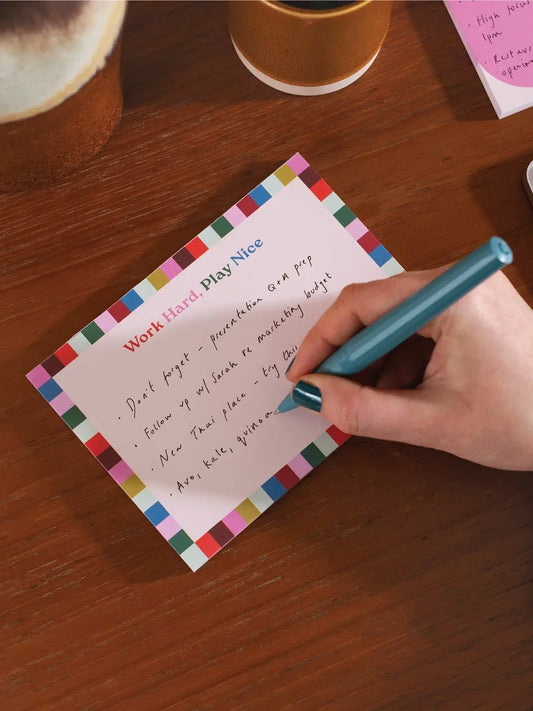 Work Hard, Play Nice
· Don't forget - presentation Q+A prep
· Follow up w/ Sarah re marketing budget
· New Thai place - try this
· Avo, kale, quinoa
· High focus
1pm